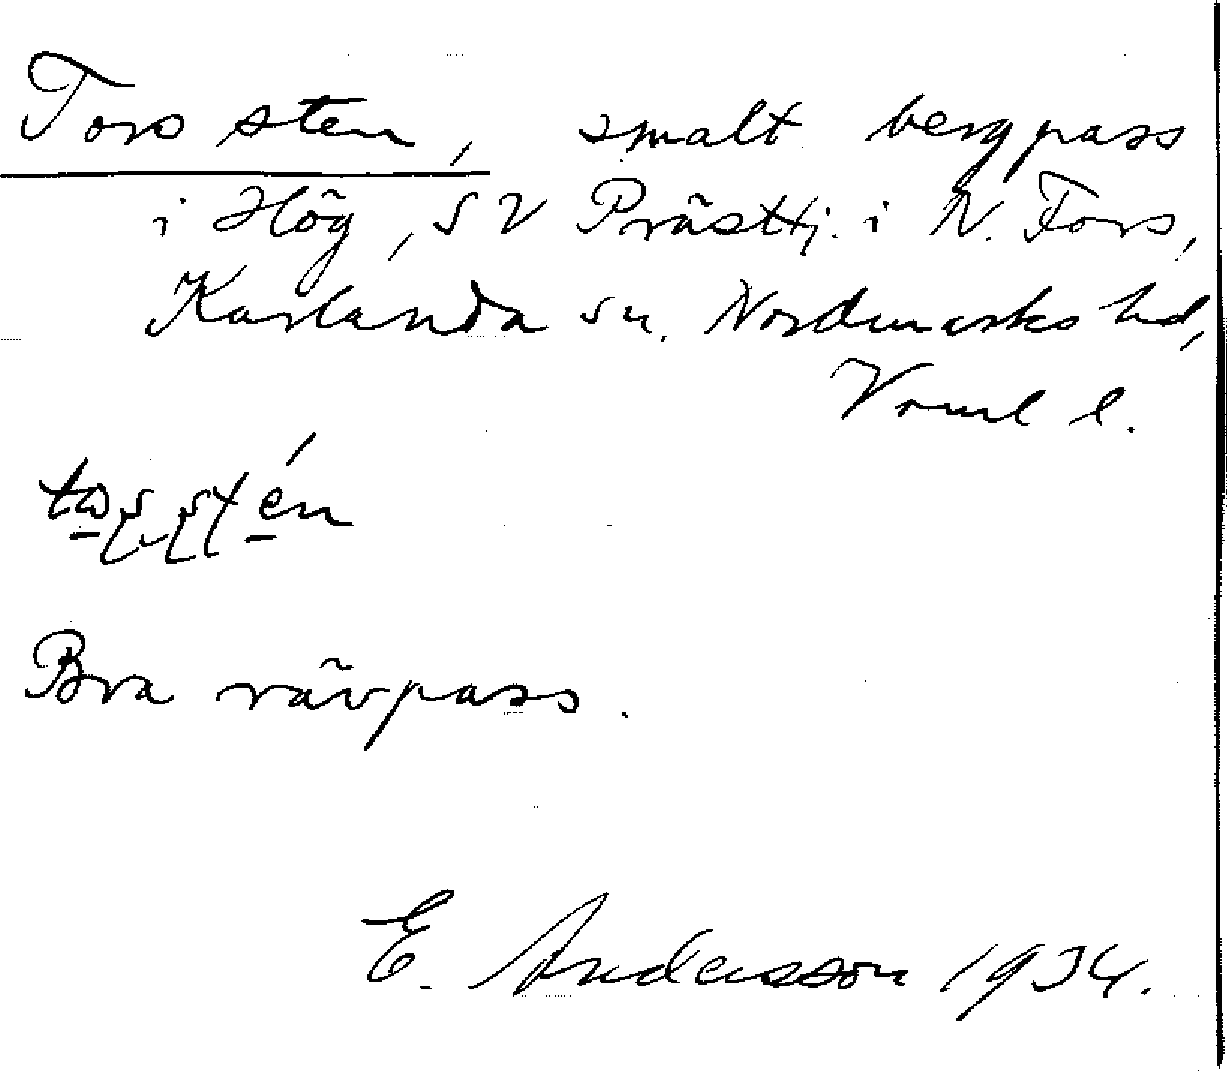 Tors sten, smalt bergpass
i Hög, SV Prästtj. i N. Fors,
Karlanda sn. Nordmarks hd,
Vrml l.
Bra rävpass.
E. Andersson 1934.